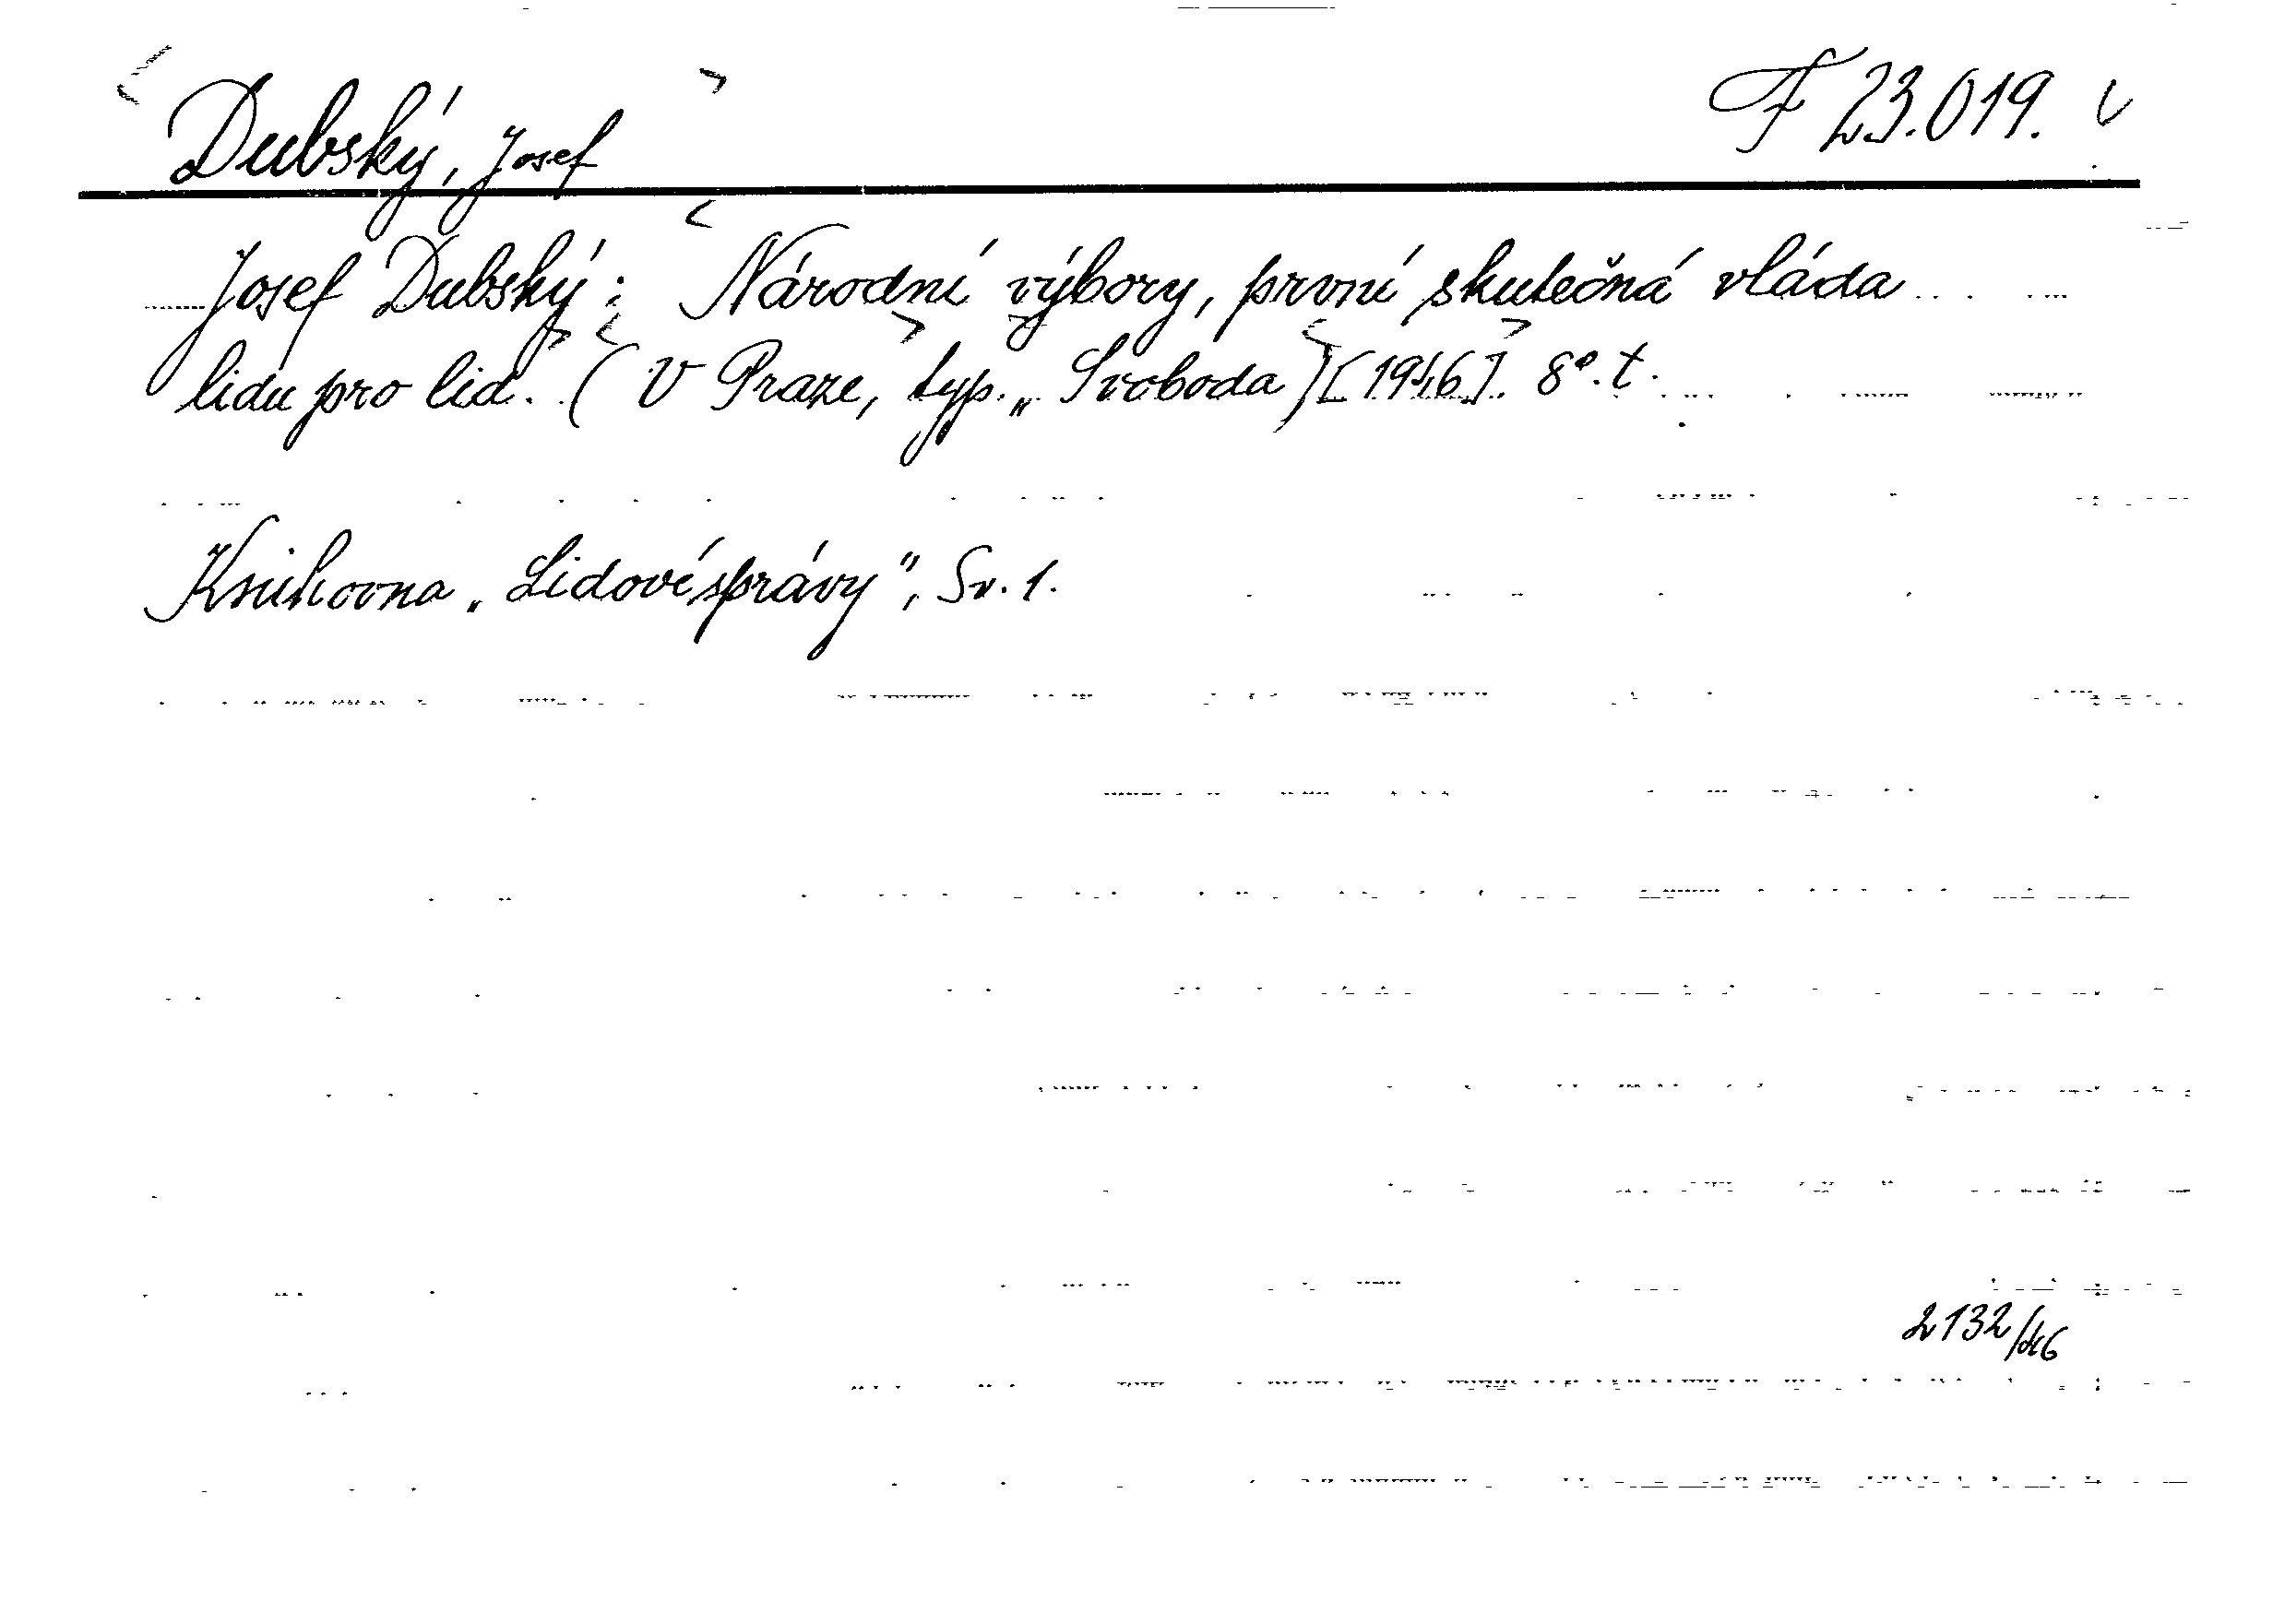 Dubský, Josef F 23.019.
Josef Dubský: Národní výbory, první skutečná vláda
lidu pro lid. (V Praze, typ. „Svoboda) [1946]. 8°. t.
Knihovna „Lidové správy", Sv. 1.
2132/46